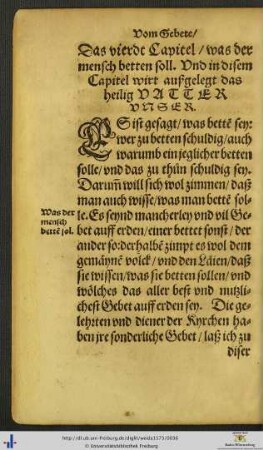 Vom Gebete/
Das vierdt Capitel / was der
mensch betten soll. Vnd in disem
Capitel wirt auszgelegt das
heilig VATTER
VNSER.
ES ist gesagt / was bettē sey:
wer zu betten schuldig / auch
warumb ein jeglicher betten
solle / vnd das zu thůn schuldig sey.
Darum̄ will sich wol zimmen / daß
man auch wisse / was man bettē sol-
le. Es seynd mancherley vnd vil Ge-
Was der
mensch
bettē sol.
bet auff erden / einer bettet sonst / der
ander so: derhalbē zimpt es wol dem
gemäynē volck / vnd den Läien / daß
sie wissen / was sie betten sollen / vnd
wölches das aller best vnd nutzli-
chest Gebet auff erden sey. Die ge-
lehrten vnd diener der Kyrchen ha-
ben jre sonderliche Gebet / laß ich zu
diser
http://dl.ub.uni-freiburg.de/diglit/
© Universitätsbibliothek Freiburg